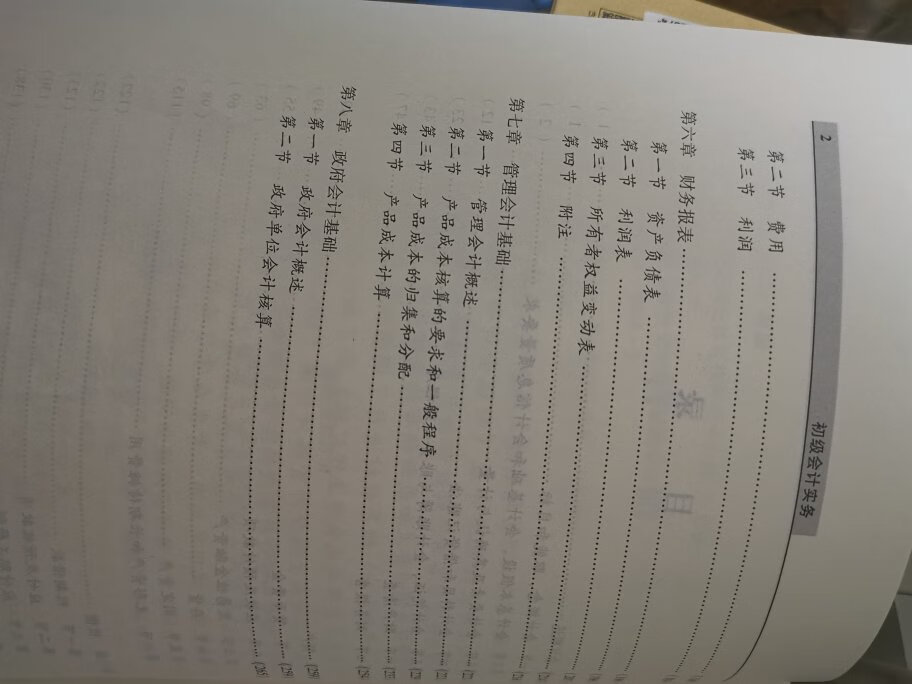 2 初级会计实务
第二节 费用
第三节 利润
第六章 财务报表
第一节 资产负债表
第二节 利润表
第三节 所有者权益变动表
第四节 附注
第七章 管理会计基础
第一节 管理会计概述
第二节 产品成本核算的要求和一般程序
第三节 产品成本的归集和分配
第四节 产品成本计算
第八章 政府会计基础
第一节 政府会计概述
第二节 政府单位会计核算